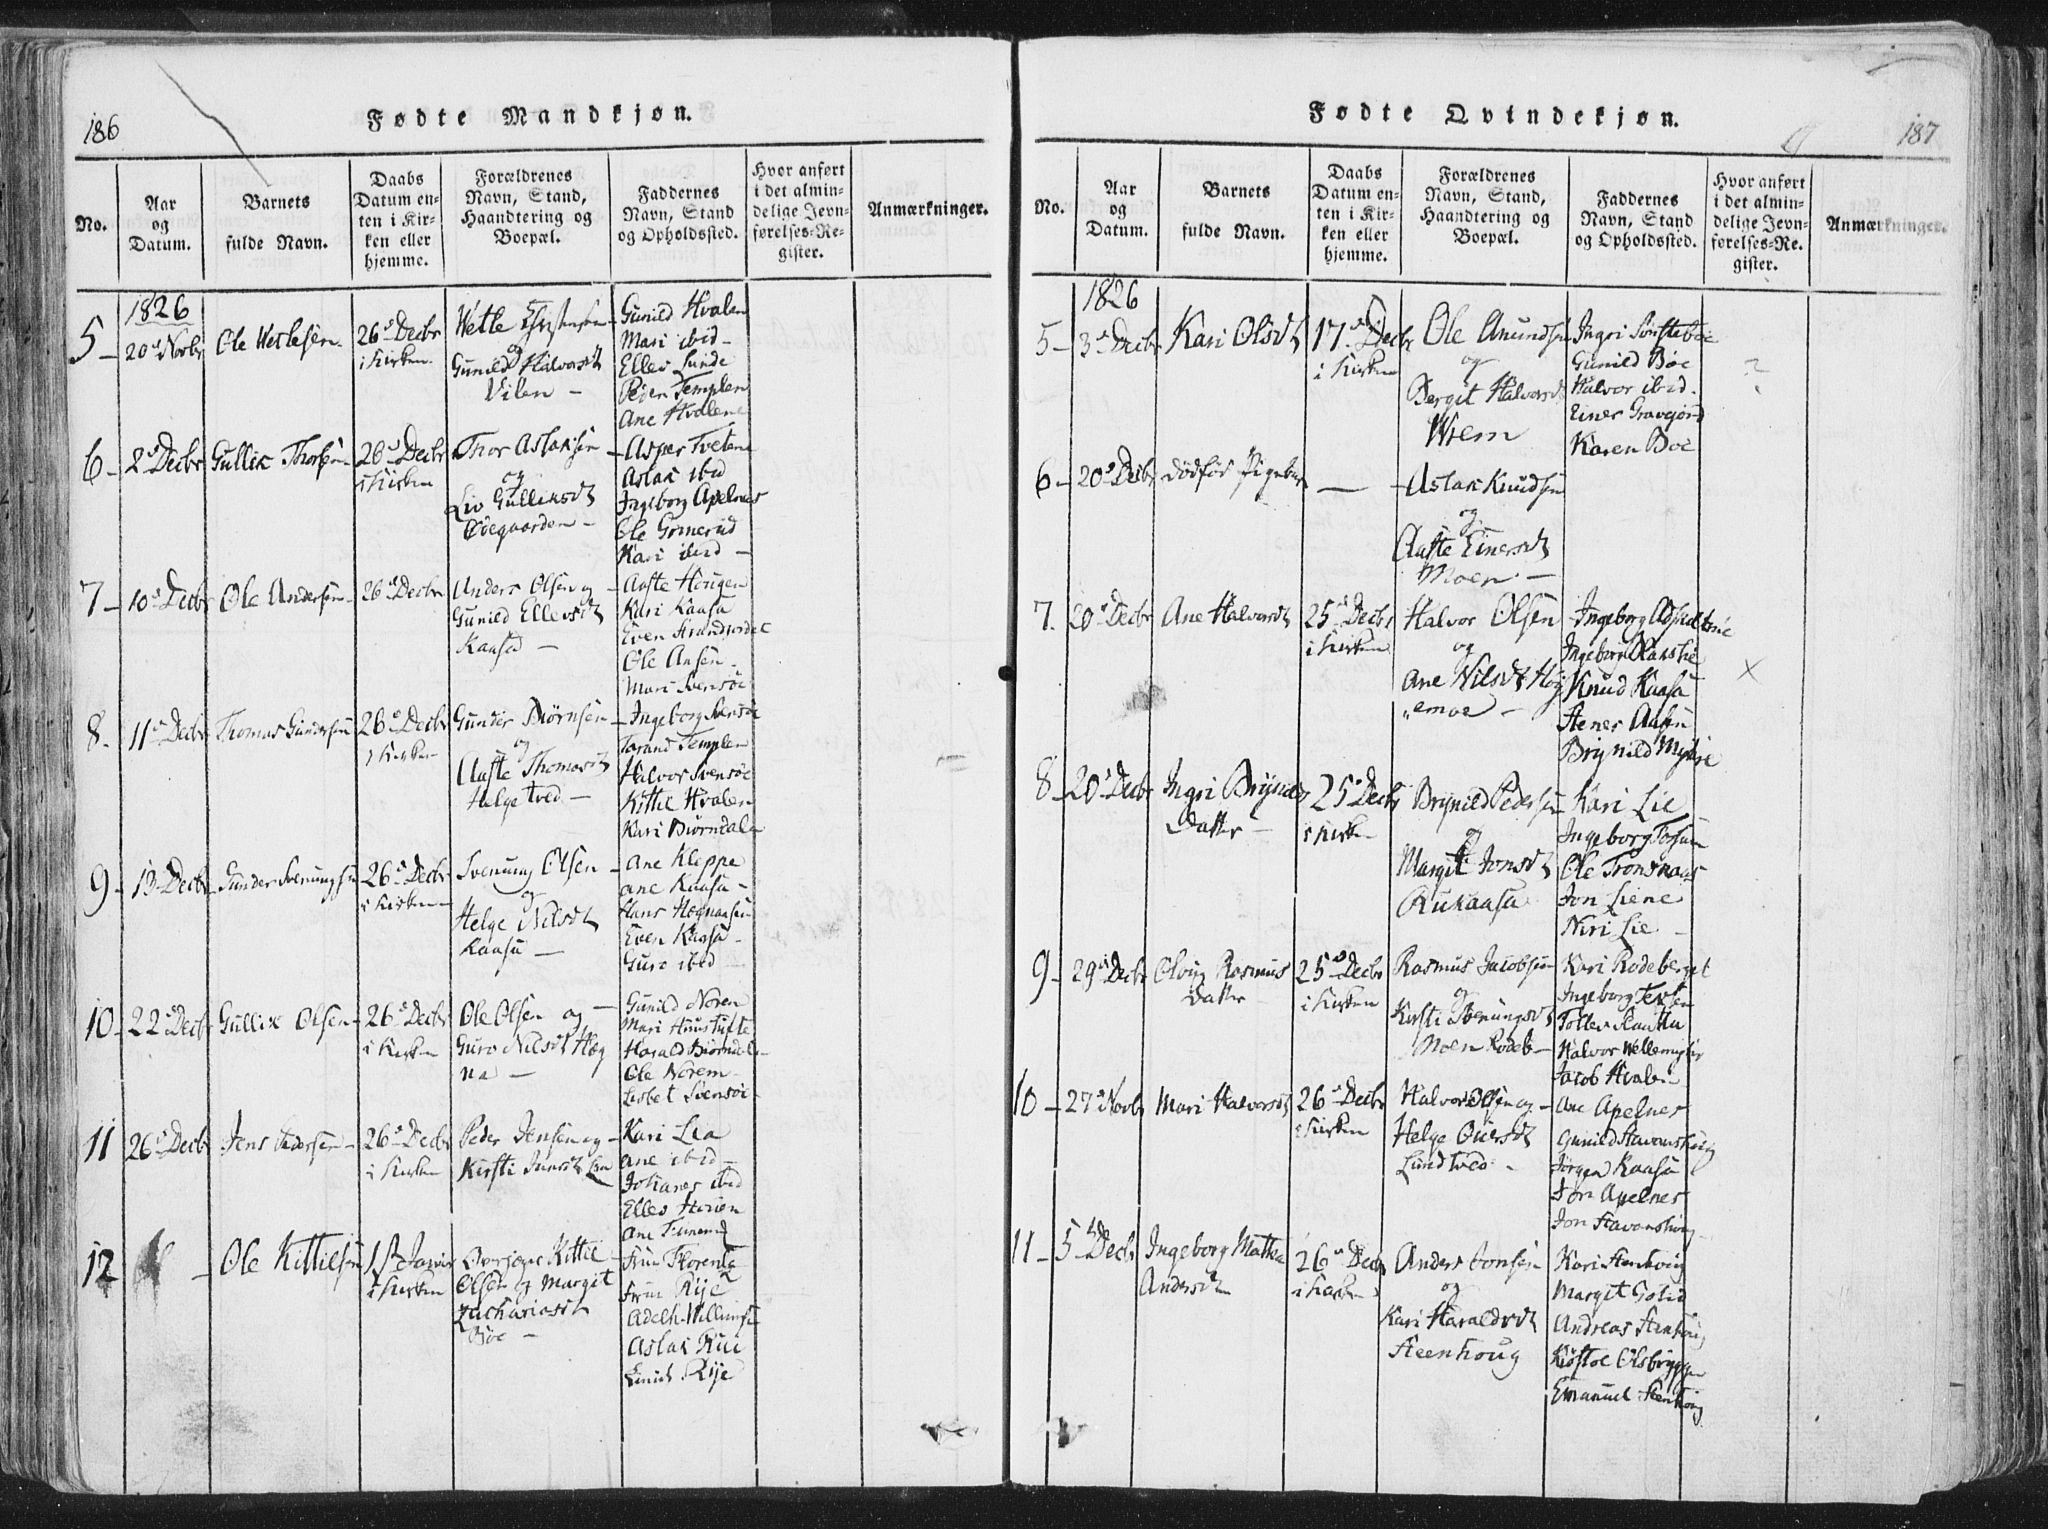 186
Fødte Mandkjøn.
No.
Aar
og
Datum.
Barnets
fulde Navn.
Daabs
Datum en-
ten i Kir-
ken eller
hjemme.
Forældrenes
Navn, Stand,
Haandtering og
Boepæl.
Faddernes
Navn, Stand
og Opholdssted.
Hvor anført
i det almin-
delige Jevn-
førelses-Re-
gister.
Anmærkninger.
1826
5
20d Novbr
Ole Wetlesen
26d Decbr
i Kirken
Wetle
og
Gunild Halvorsdt
Vilen
Gunild Hvalen
Mari ibid
Ellev Lunde
Peder Templen
Ane Hvalene
6
2d Decbr
Gullik Thorsen
26d Decbr
i Kirken
Thor Aslaksen
og
Liv Gulliksdt
Odegaarden
Asper Tvetene
Aslak ibid
Ingeborg Apelnes
Ole Gomerud
Kari ibid
7
10d Decbr
Ole Andersen
26d Decbr
Anders Olsen og
Gunild Ellevsdt
Kaasa
Aaste Hougen
Kari Kaasa
Even
Ole Ansen
Mari Svensøe
8.
11d Decbr
Thomas Gundersen
26d Decbr
i Kirken
Gunder Biørnsen
og
Aaste Thomasdt
Helgetved
Ingeborg Svensøe
Tarand Templen
Halvor Svensøe
Kittil Hvalen
Kari Biørndalen
9
13 Decbr
Gunder Svenungsen
26d Decbr
i Kirken
Svenung Olsen
og
Helge Nilsdt
Kaasa
Ane Kleppe
Ane Kaasa
Hans Hægnaasen
Even Kaasa
Guro ibid
10
22d Decbr
Gullik Olsen
26d Decbr
i Kirken
Ole Olsen og
Guro Nilsdt Hæg
na
Gunild Noren
Mari Huustufte
Harald Biørndalen
Ole Norem
Lisbet Svensøe
11
26d Decbr
Jens Pedersen
26d Decbr
i Kirken
Peder Jensen og
Kirsti Jansdt Lia
Kari Lia
Ane ibid
Johanes ibid
Ellev
Ane
12
Ole Kittilsen
1st Januar
i Kirken
Kittil
Olsen og Margit
Zachariasdt
Bøe
Frue Florentz
Frue Rije
Adelh. Willumsen
Aslak Rue
Rije
187
Fødte Qvindekjøn.
No.
Aar
og
Datum.
Barnets
fulde Navn.
Daabs
Datum en-
ten i Kir-
ken eller
hjemme.
Forældrenes
Navn, Stand,
Haandtering og
Boepæl.
Faddernes
Navn, Stand
og Opholdssted.
Hvor anført
i det almin-
delige Jevn-
førelses-Re-
gister.
Anmærkninger.
1826
5
3d Decbr
Kari Olsdt
17d Decbr
i Kirken
Ole Anundsen
og
Bergit Halvorsdt
Wrem
Ingri Sørstebøe
Gunild Bøe
Halvor ibid.
Einer Gravejord
Karen Boe
?
6
20d Decbr
Dødfød Pigebarn
Aslak Knudsen
og
Aaste Einersdt
Moen
7.
20d Decbr
Ane Halvorsdt
25d Decbr
i Kirken
Halvor Olsen
og
Ane Nilsdt Høy
emoe
Ingeborg
Ingeborg
Knud Kaasa
Stener Aasen
Brynild Myhre
x
8
20d Decbr
Ingri Brynilds
Datter
25d Decbr
i Kirken
Brynild Pedersen
og
Margit Jonsdt
Rukaasa
Kari Lie
Ingeborg
Ole Tronsnaas
Jon Liene
Niri Lie
9
29d Decbr
Rasmus
Datter
25d Decbr
i Kirken
Rasmus Jacobsen
og
Kirsti Svenungsdt
Moen Rodeb
Kari Rodeberget
Ingeborg
Tollev
Halvor
Jacob Hvalen
10
27d Novbr
Mari Halvorsdt
26d Decbr
i Kirken
Halvor Olsen og
Helge
Lundtved
Ane Apelnes
Gunild Stavanshoug
Jørgen Kaasa
Jon Apelnes
Jon Stavanshoug
11
5d Decbr
Ingeborg Mathea
Andersdt
26d Decbr
i Kirken
Anders Jonsen
og
Kari Haraldsdt
Steenhoug
Kari Stenhoug
Margit
Andreas Stenhoug
Olsbryggen
Emanuel Stenhoug